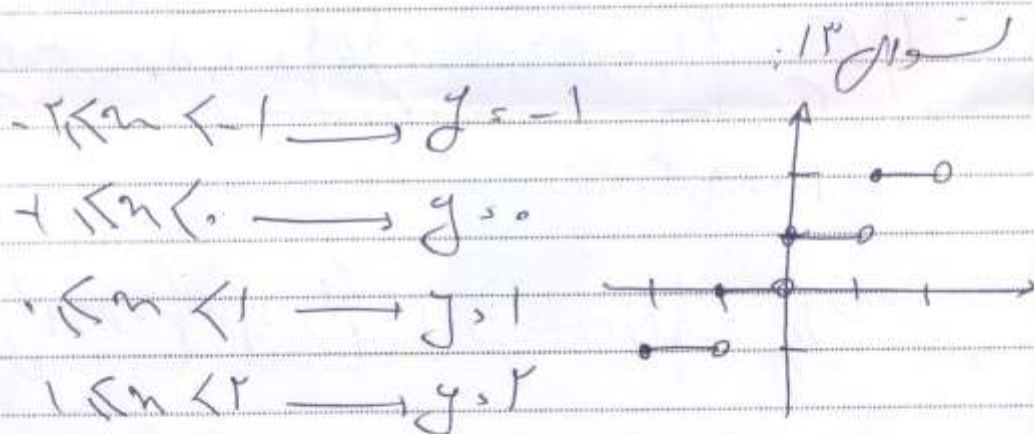 سوال ۱۳:
-۲ ≤ x < -۱ → y = -۱
-۱ ≤ x < ۰ → y = ۰
۰ ≤ x < ۱ → y = ۱
۱ ≤ x < ۲ → y = ۲